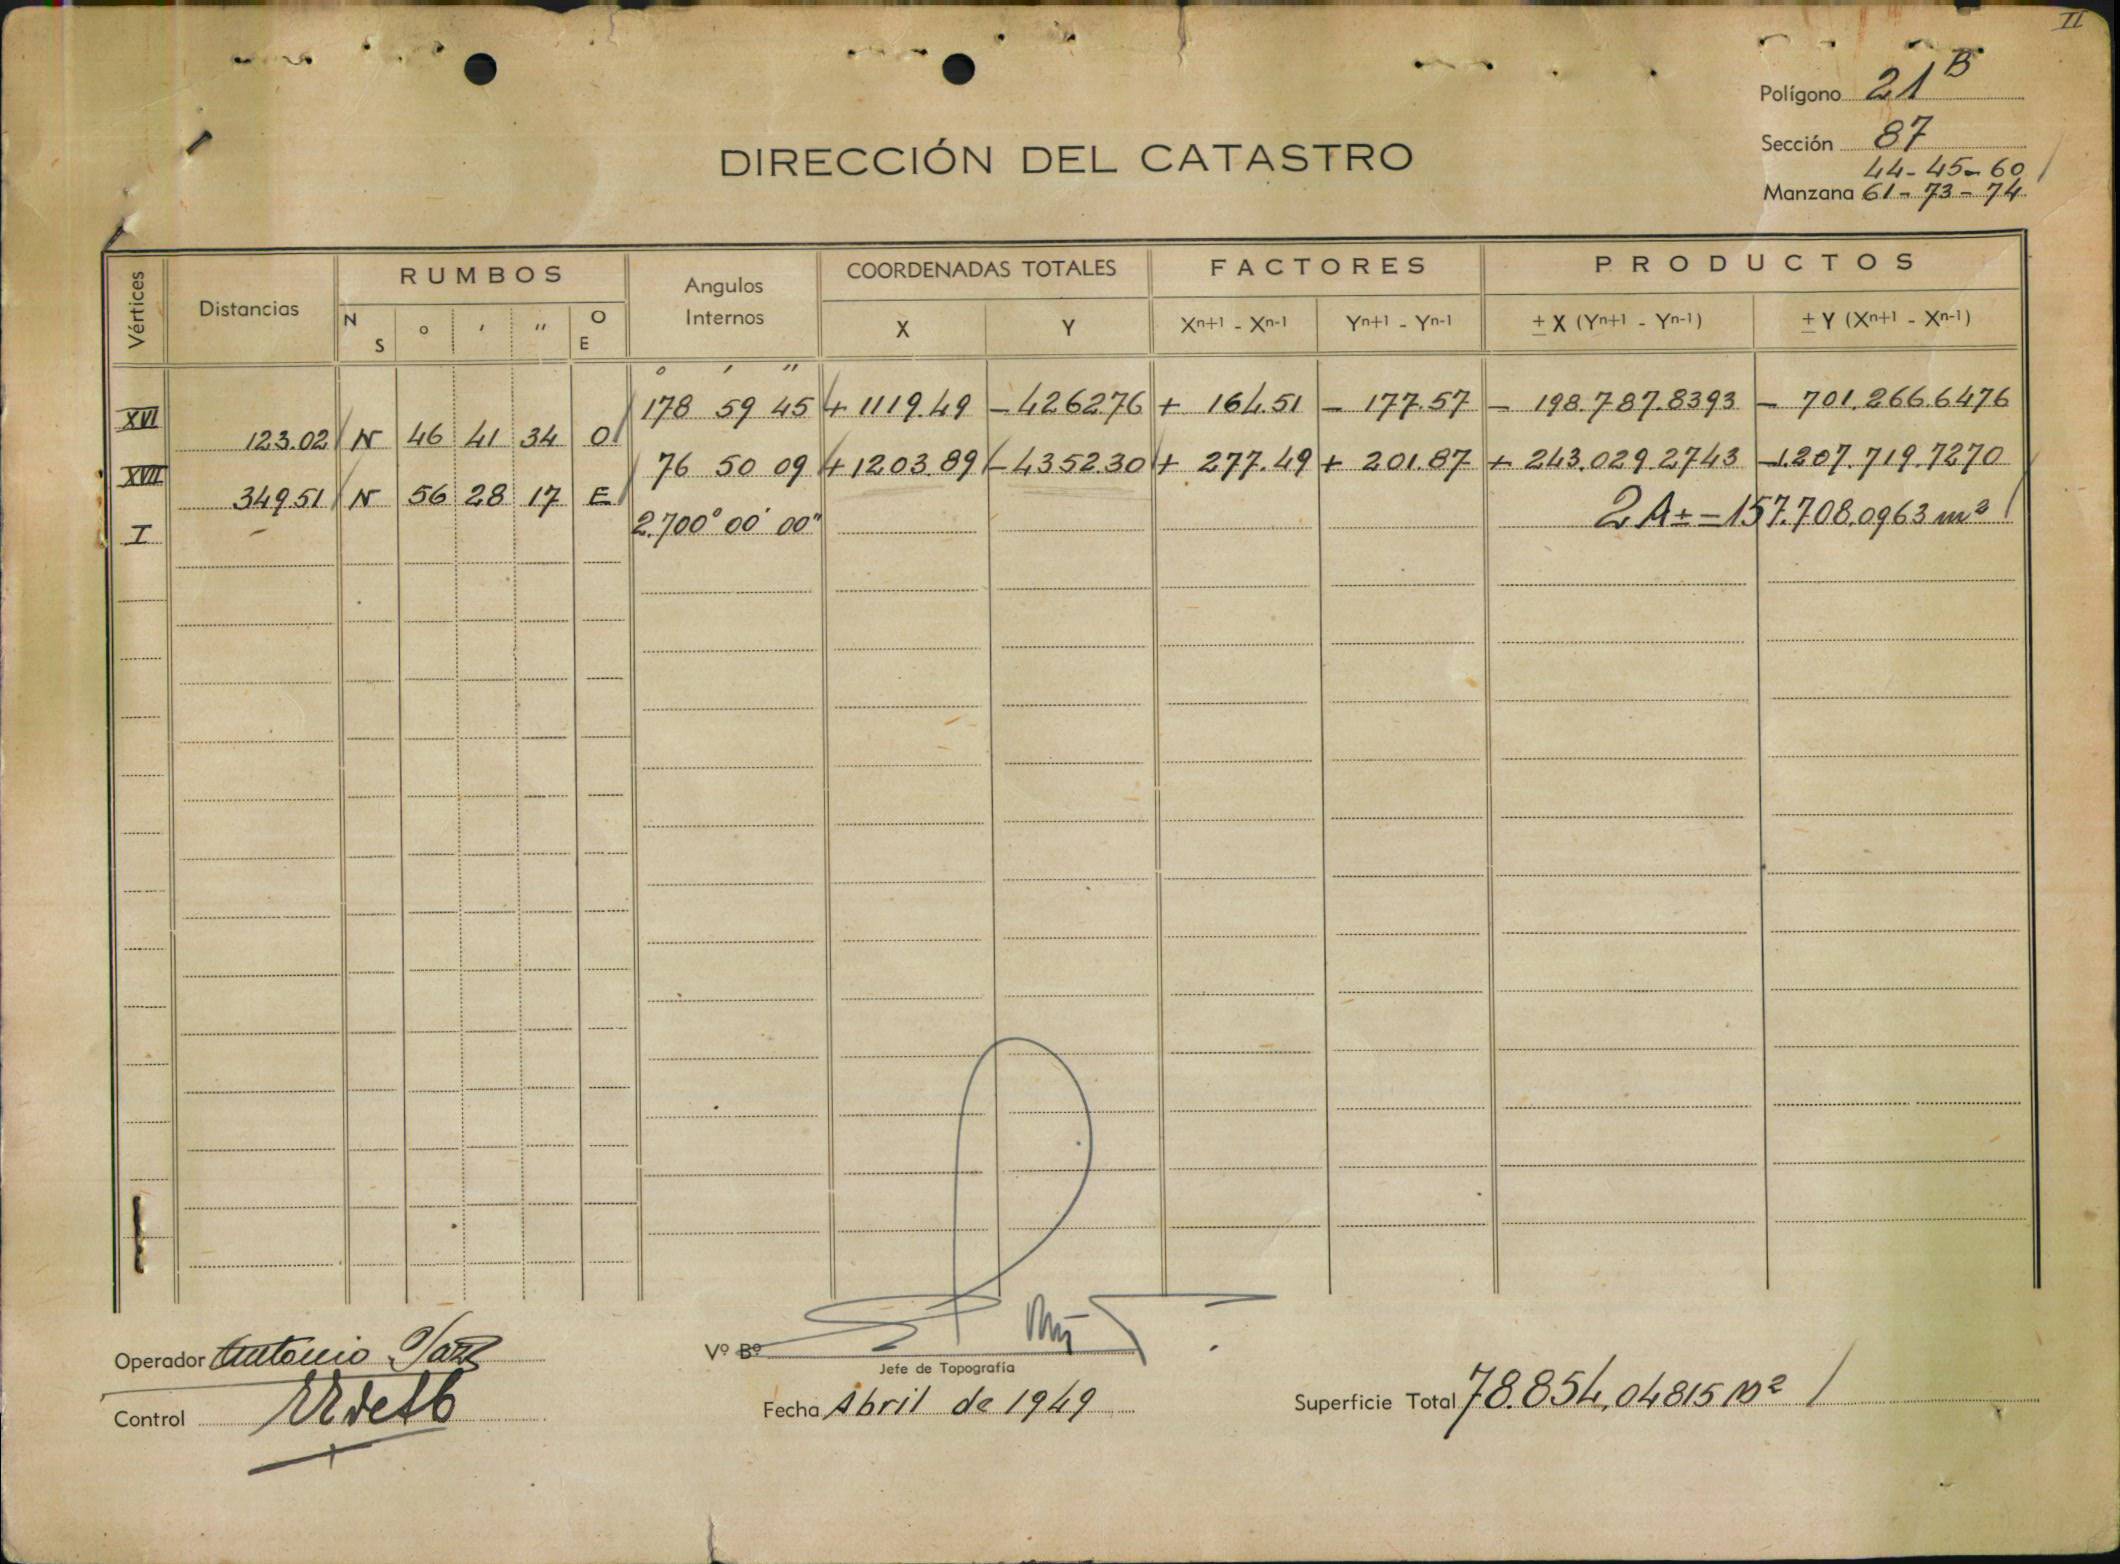 II
Polígono 21 B
Sección 87
44-45-60
Manzana 61-73-74
DIRECCIÓN DEL CATASTRO
Vértices Distancias RUMBOS Angulos Internos COORDENADAS TOTALES FACTORES PRODUCTOS
N S ° ' " O E X Y Xn+1 - Xn-1 Yn+1 - Yn-1 ± X (Yn+1 - Yn-1) ± Y (Xn+1 - Xn-1)
° ' "
XVI 178 59 45 + 1119.49 - 4262 76 + 164.51 - 177.57 - 198.787.8393 - 701.266.6476
123.02 N 46 41 34 O
XVII 76 50 09 + 1203.89 - 4352 30 + 277.49 + 201.87 + 243.029 2743 - 1.207.719.7270
349 51 N 56 28 17 E
I 2.700° 00' 00" 2 A ± = 157.708.0963 m²
Operador Antonio
Control
Vº Bº
Jefe de Topografía
Fecha Abril de 1949
Superficie Total 78.854,04815 m²